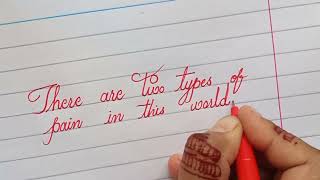 There are two types of
pain in this world,